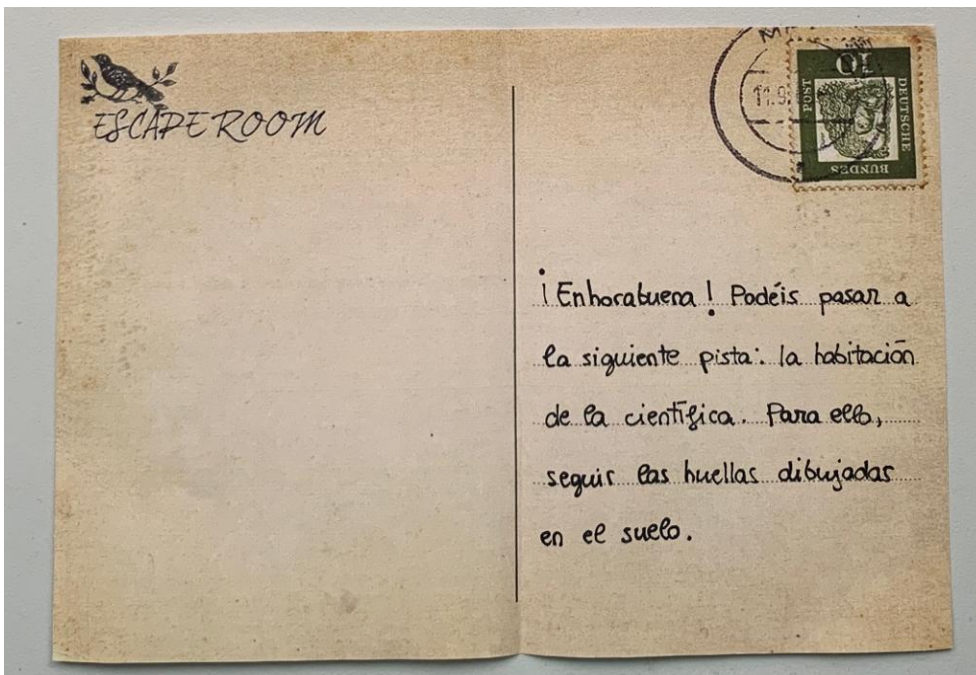 ESCAPE ROOM
10
DEUTSCHE
POST
BUNDES
¡Enhorabuena! Podéis pasar a
la siguiente pista: la habitación
de la científica. Para ello,
seguir las huellas dibujadas
en el suelo.